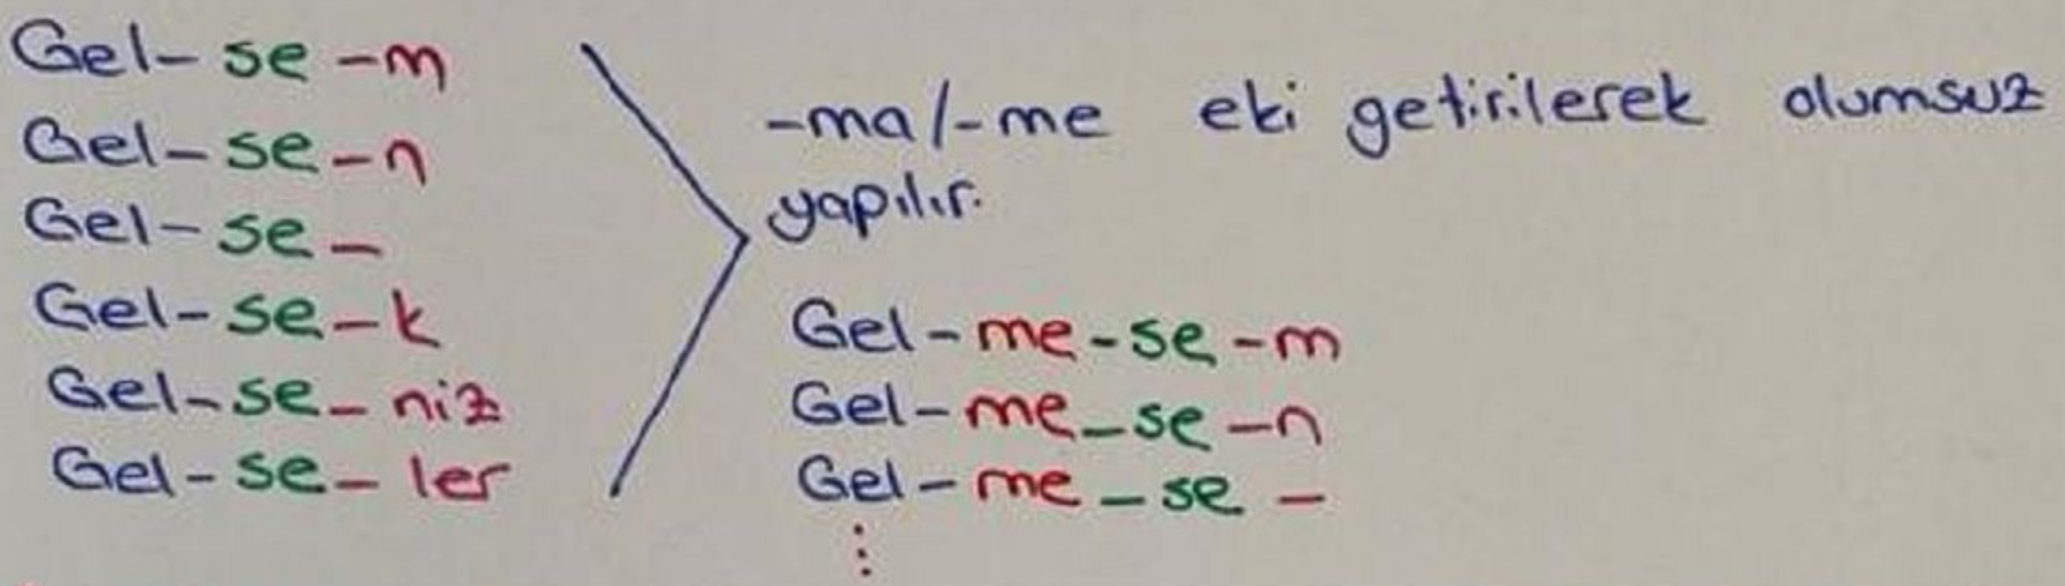 Gel-se-m
Gel-se-n
Gel-se-
Gel-se-k
Gel-se-niz
Gel-se-ler
-ma/-me eki getirilerek olumsuz
yapılır.
Gel-me-se-m
Gel-me-se-n
Gel-me-se-
⋮